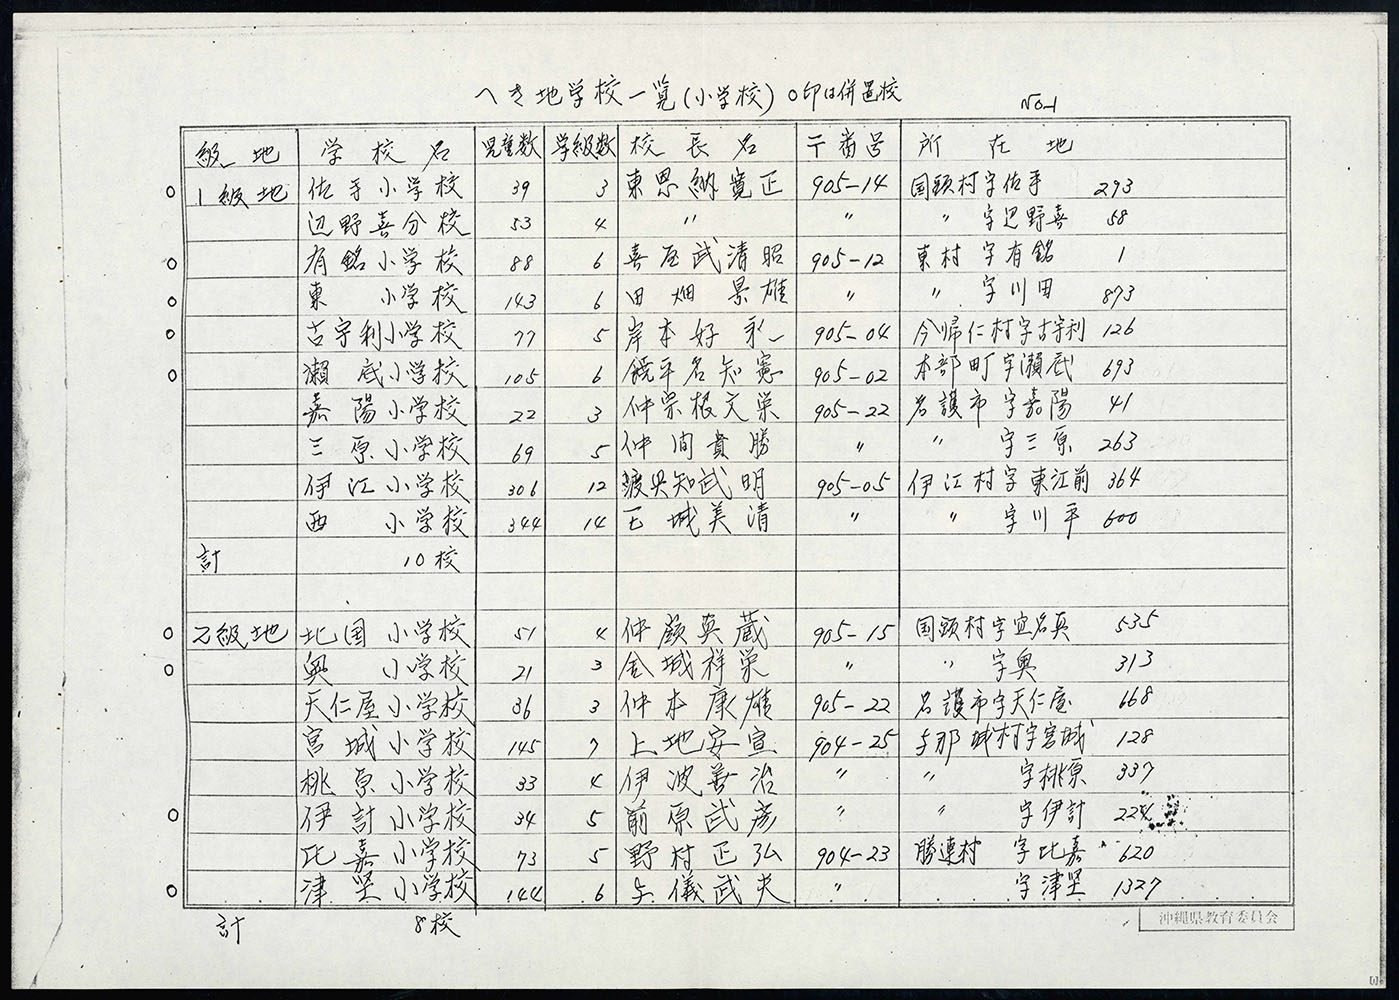 へき地学校一覧(小学校) ○印は併置校 No.1
級地 学校名 児童数 学級数 校長名 〒番号 所在地
○ 1級地 佐手小学校 39 3 東恩納寛正 905-14 国頭村字佐手 293
辺野喜分校 53 4 〃 〃 〃 字辺野喜 58
○ 有銘小学校 88 6 喜屋武清昭 905-12 東村字有銘 1
○ 東小学校 143 6 田畑景雄 〃 〃 字川田 873
○ 古宇利小学校 77 5 岸本好永 905-04 今帰仁村字古宇利 126
○ 瀬底小学校 105 6 饒平名知憲 905-02 本部町字瀬底 693
嘉陽小学校 22 3 仲宗根文栄 905-22 名護市字嘉陽 41
三原小学校 69 5 仲間貴勝 〃 〃 字三原 263
伊江小学校 306 12 渡久知武明 905-05 伊江村字東江前 364
西小学校 344 14 玉城美清 〃 〃 字川平 600
計 10校
○ 2級地 北国小学校 51 4 仲嶺真蔵 905-15 国頭村字宜名真 535
○ 奥小学校 21 3 金城祥栄 〃 〃 字奥 313
天仁屋小学校 36 3 仲本康雄 905-22 名護市字天仁屋 668
宮城小学校 145 7 上地安宣 904-25 与那城村字宮城 128
桃原小学校 33 4 伊波善治 〃 〃 字桃原 337
○ 伊計小学校 34 5 前原武彦 〃 〃 字伊計 224
比嘉小学校 73 5 野村正弘 904-23 勝連村 字比嘉 620
○ 津堅小学校 144 6 与儀武夫 〃 字津堅 1327
計 8校
沖縄県教育委員会